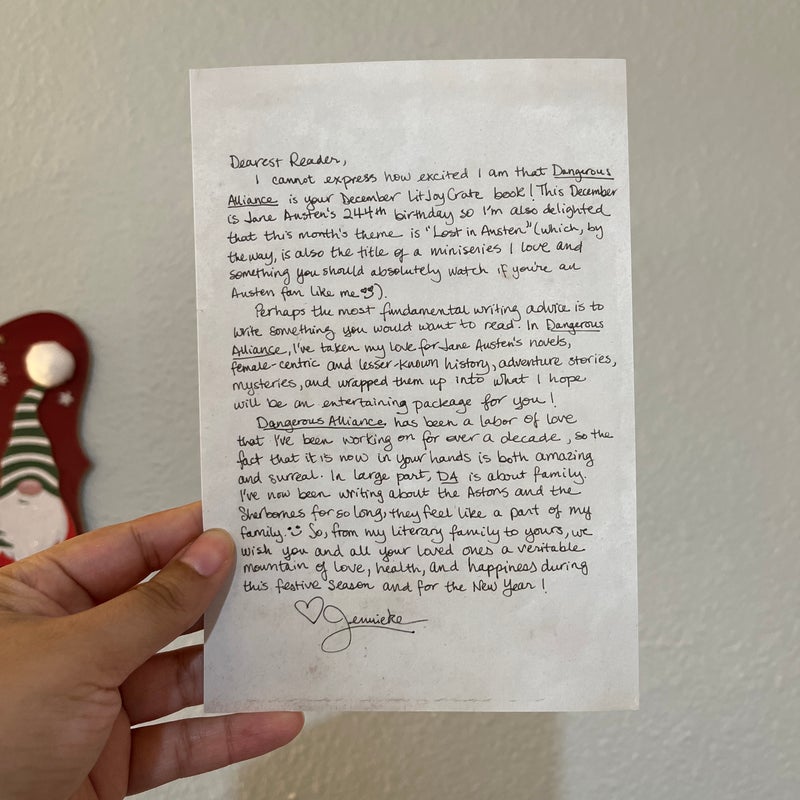 Dearest Reader,
I cannot express how excited I am that Dangerous
Alliance is your December LitJoy Crate book! This December
is Jane Austen's 244th birthday so I'm also delighted
that this month's theme is "Lost in Austen" (which, by
the way, is also the title of a miniseries I love and
something you should absolutely watch if you're an
Austen fan like me).
Perhaps the most fundamental writing advice is to
write something you would want to read. In Dangerous
Alliance, I've taken my love for Jane Austen's novels,
female-centric and lesser-known history, adventure stories,
mysteries, and wrapped them up into what I hope
will be an entertaining package for you!
Dangerous Alliance has been a labor of love
that I've been working on for over a decade, so the
fact that it is now in your hands is both amazing
and surreal. In large part, DA is about family.
I've now been writing about the Astons and the
Sherbornes for so long, they feel like a part of my
family. So, from my literary family to yours, we
wish you and all your loved ones a veritable
mountain of love, health, and happiness during
this festive season and for the New Year!
♡Jennieke